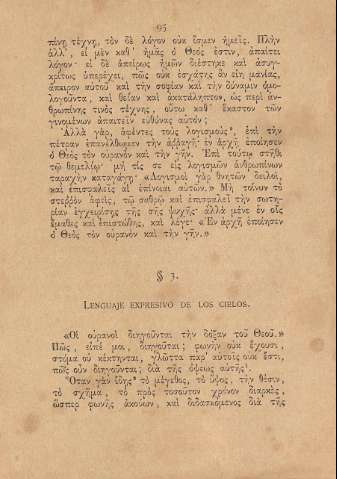 95
τίνη τέχνη, τὸν δὲ λόγον οὐκ ἴσμεν ἡμεῖς. Πλὴν
ἀλλ', εἰ μὲν καθ' ἡμᾶς ὁ Θεός ἐστιν, ἀπαίτει
λόγον· εἰ δὲ ἀπείρως ἡμῶν διέστηκε καὶ ἀσυγ-
κρίτως ὑπερέχει, πῶς οὐκ ἐσχάτης ἂν εἴη μανίας,
ἄπειρον αὐτοῦ καὶ τὴν σοφίαν καὶ τὴν δύναμιν ὁμο-
λογοῦντα, καὶ θείαν καὶ ἀκατάληπτον, ὡς περὶ ἀν-
θρωπίνης τινὸς τέχνης, οὕτω καθ' ἕκαστον τῶν
γινομένων ἀπαιτεῖν εὐθύνας αὐτόν;
Ἀλλὰ γὰρ, ἀφέντες τοὺς λογισμούς, ἐπὶ τὴν
πέτραν ἐπανέλθωμεν τὴν ἀρραγῆ· ἐν ἀρχῇ ἐποίησεν
ὁ Θεὸς τὸν οὐρανὸν καὶ τὴν γῆν. Ἐπὶ τούτῳ στῆθι
τῷ θεμελίῳ· μή τίς σε εἰς λογισμῶν ἀνθρωπίνων
ταραχὴν καταγάγῃ· «Λογισμοὶ γὰρ θνητῶν δειλοί,
καὶ ἐπισφαλεῖς αἱ ἐπίνοιαι αὐτῶν.» Μὴ τοίνυν τὸ
στεῤῥὸν ἀφείς, τῷ σαθρῷ καὶ ἐπισφαλεῖ τὴν σωτη-
ρίαν ἐγχειρίσῃς τῆς σῆς ψυχῆς· ἀλλὰ μένε ἐν οἷς
ἔμαθες καὶ ἐπιστώθης, καὶ λέγε· «Ἐν ἀρχῇ ἐποίησεν
ὁ Θεὸς τὸν οὐρανὸν καὶ τὴν γῆν.»
§ 3.
LENGUAJE EXPRESIVO DE LOS CIELOS.
«Οἱ οὐρανοὶ διηγοῦνται τὴν δόξαν τοῦ Θεοῦ.»
Πῶς, εἰπέ μοι, διηγοῦνται; φωνὴν οὐκ ἔχουσι,
στόμα οὐ κέκτηνται, γλῶττα παρ' αὐτοῖς οὐκ ἔστι,
πῶς οὖν διηγοῦνται; διὰ τῆς ὄψεως αὐτῆς.
Ὅταν γὰρ ἴδῃς τὸ μέγεθος, τὸ ὕψος, τὴν θέσιν,
τὸ σχῆμα, τὸ πρὸς τοσοῦτον χρόνον διαρκές,
ὥσπερ φωνῆς ἀκούων, καὶ διδασκόμενος διὰ τῆς